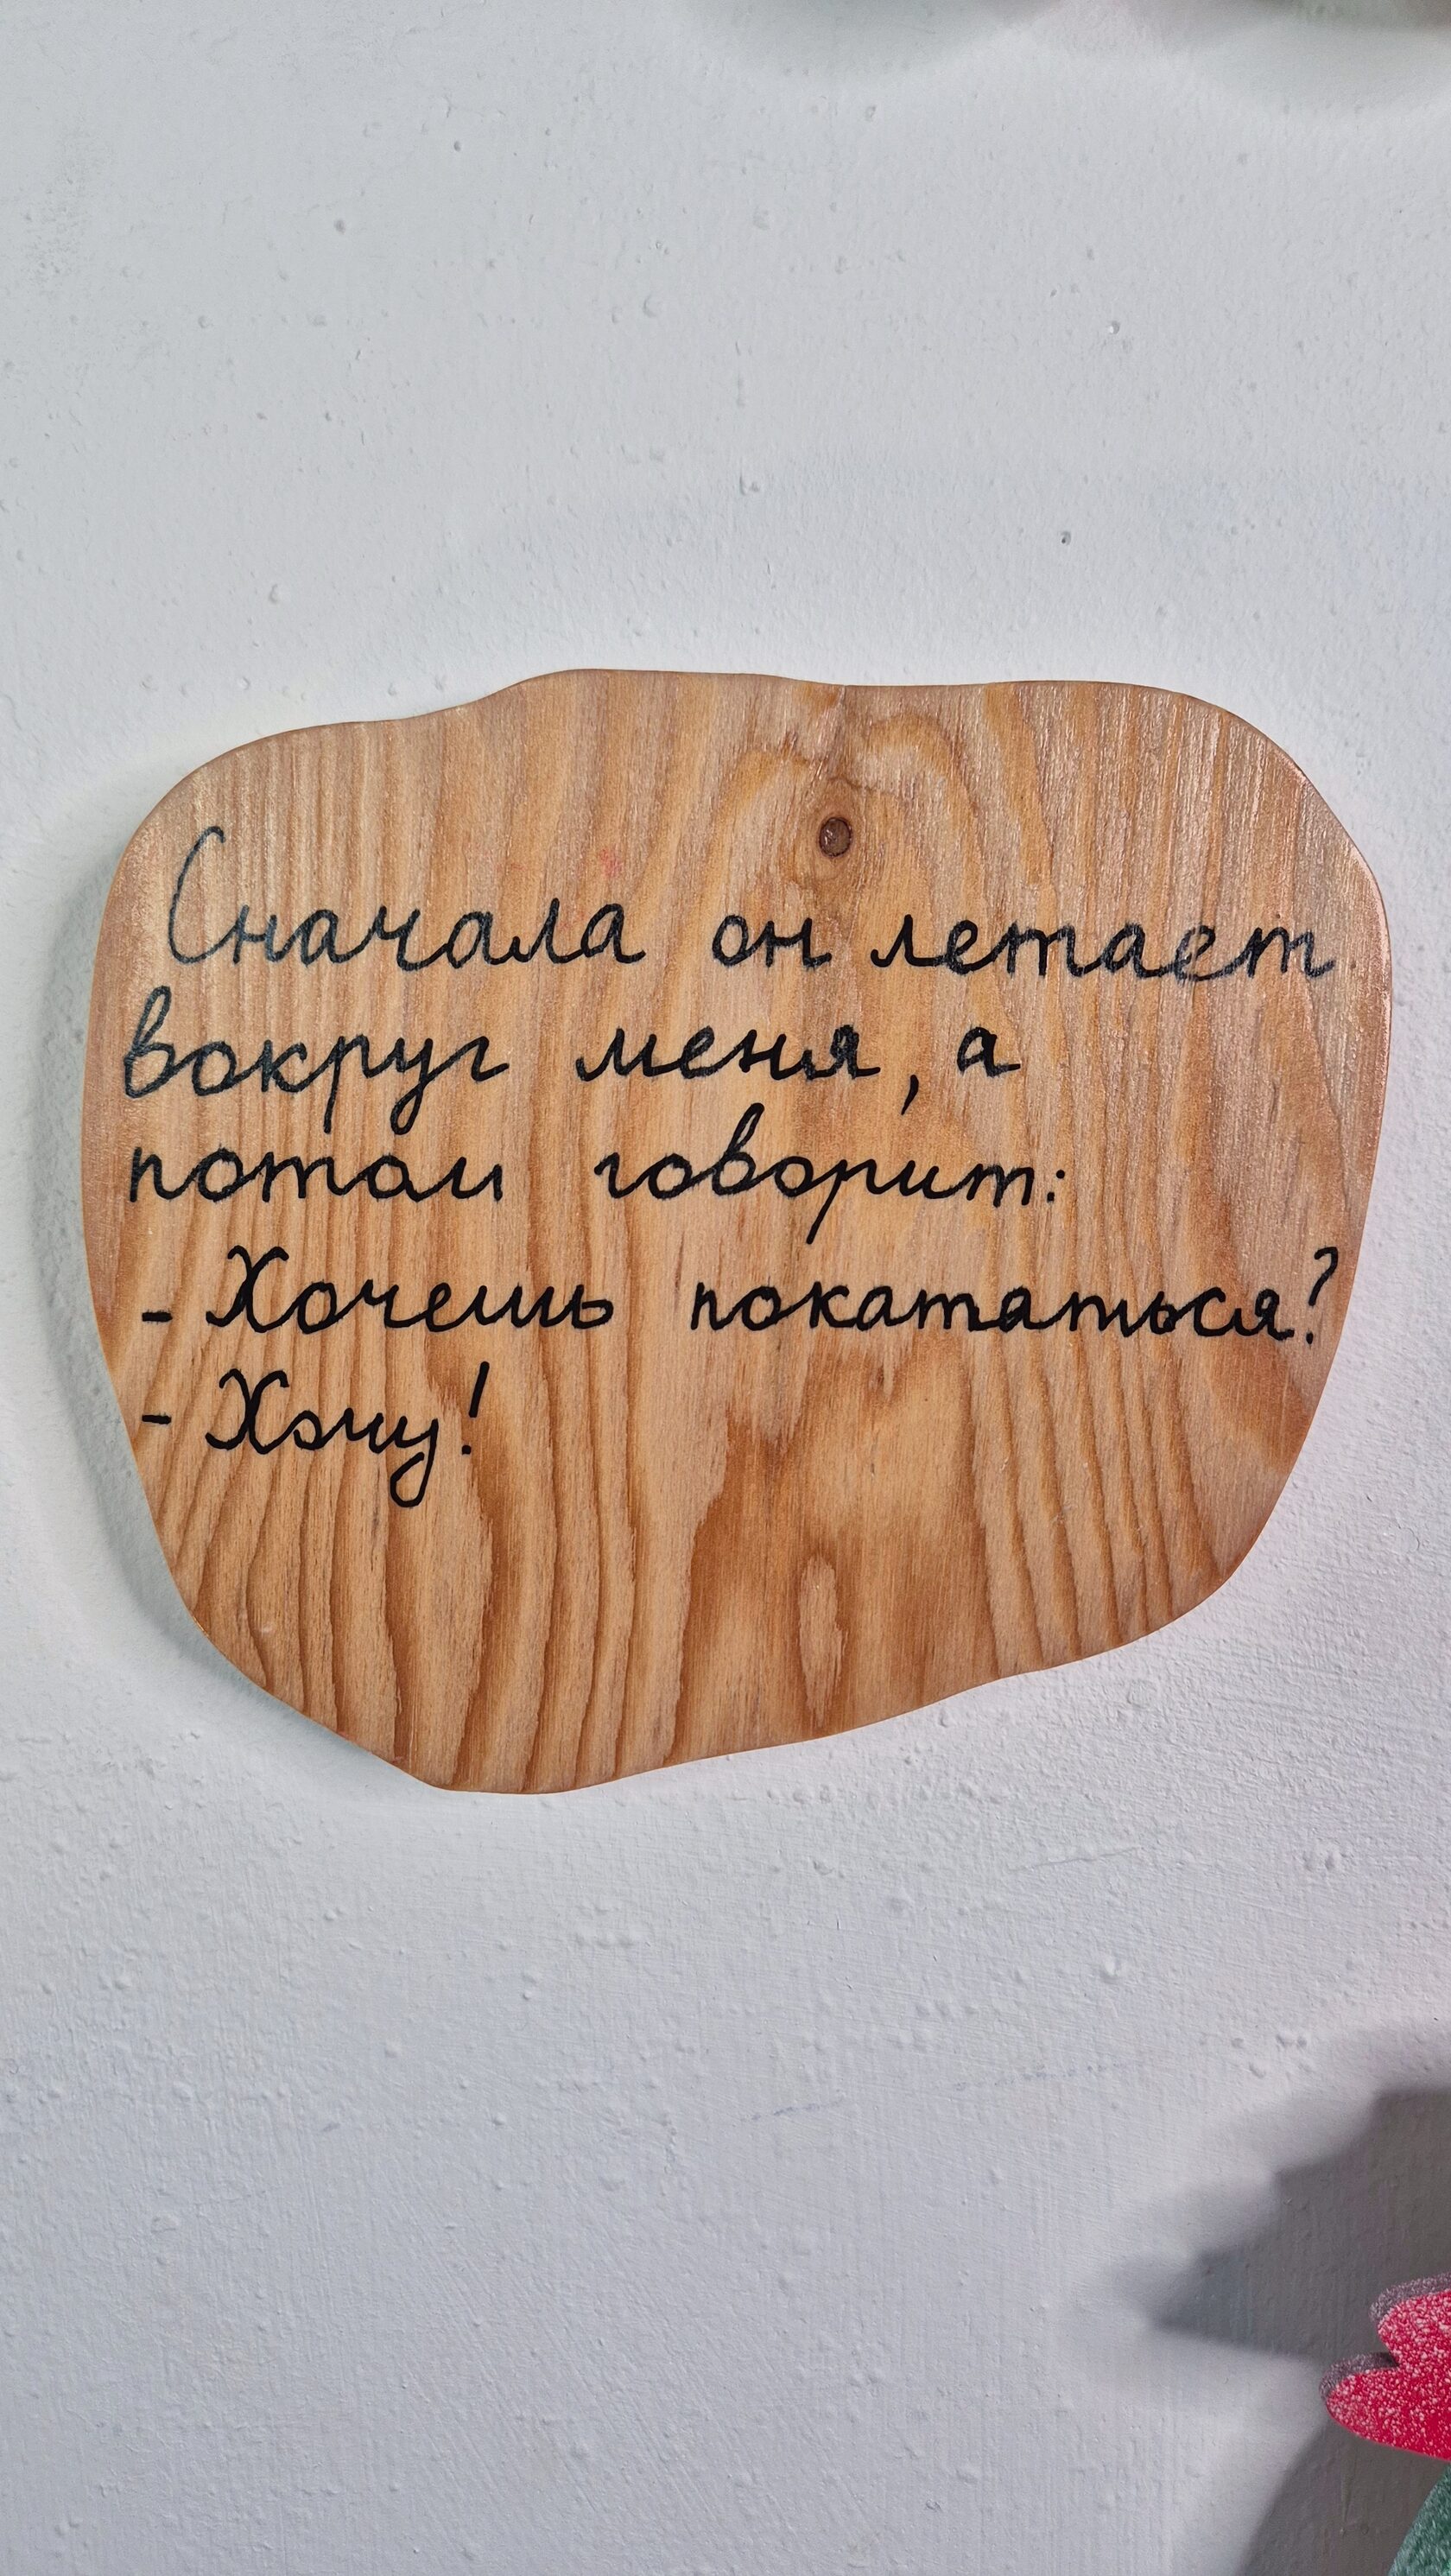 Сначала он летает
вокруг меня, а
потом говорит:
- Хочешь покататься?
- Хочу!